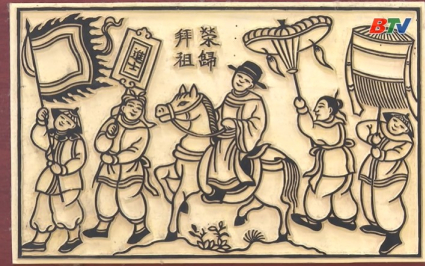 榮歸
拜祖
BTV